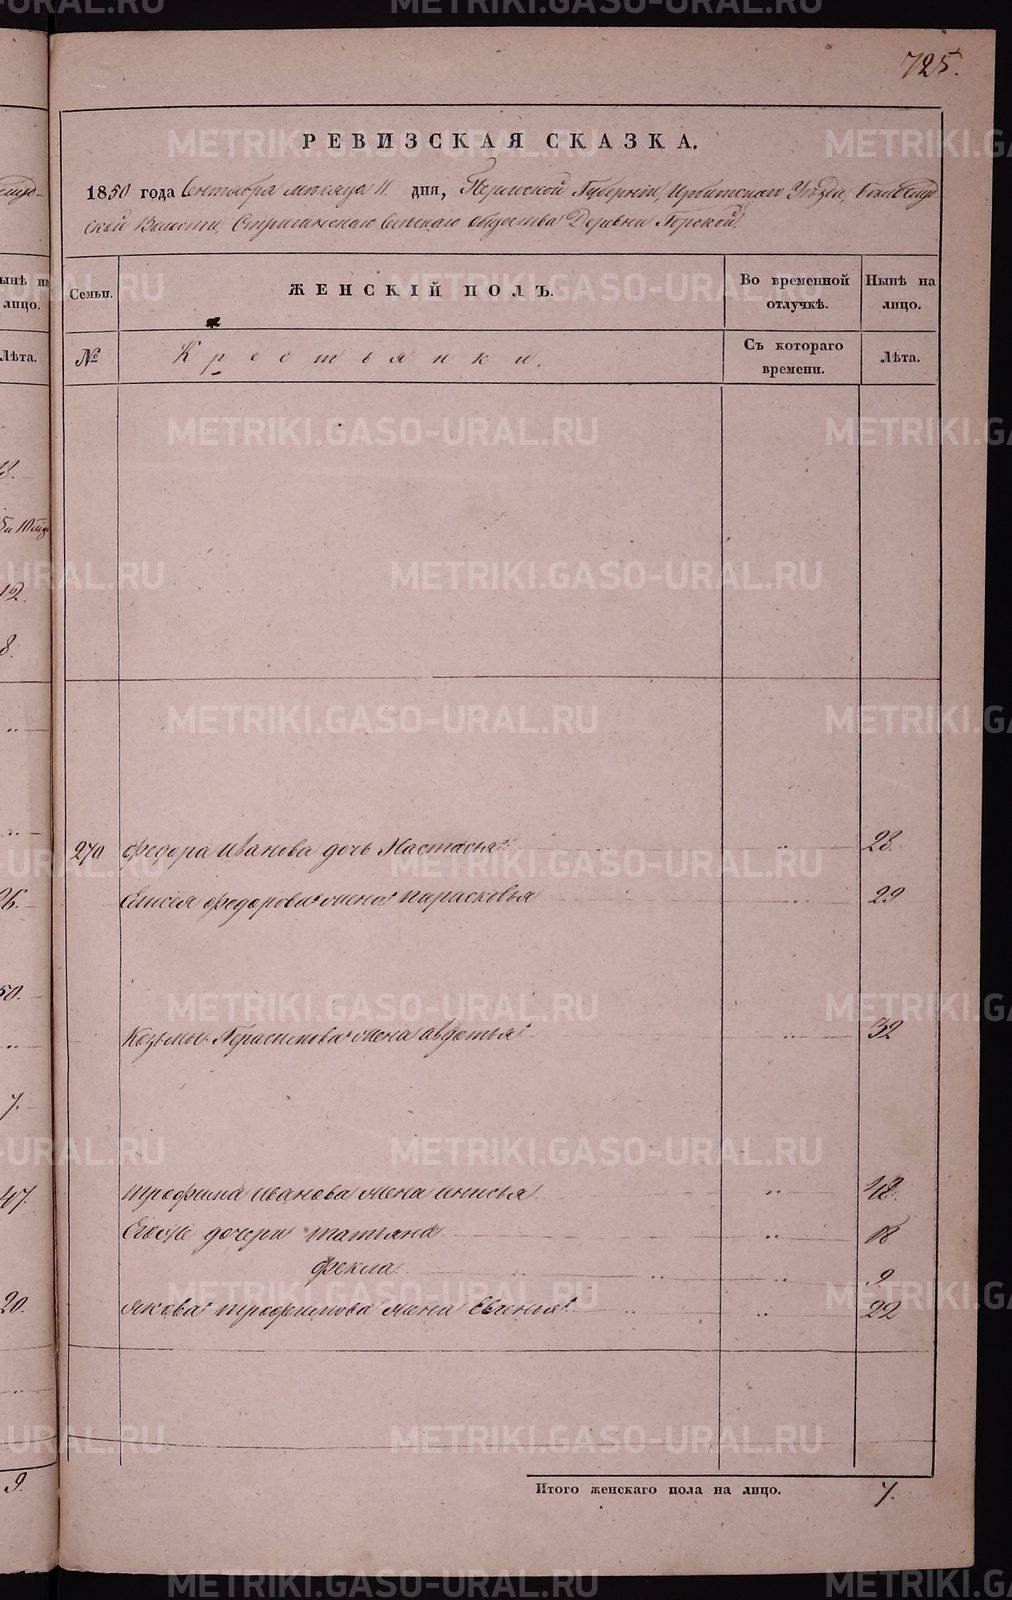 725.
РЕВИЗСКАЯ СКАЗКА.
1850 года Сентября месяца 11 дня, Пермской Губернии, Ирбитского Уезда,
ской Волости, Стриганского Сельского общества Деревни Горской
ынѣ на лицо.
Семьи.
ЖЕНСКІЙ ПОЛЪ.
Во временной отлучкѣ.
Нынѣ на лицо.
Лѣта.
№
Крестьянки.
Съ котораго времени.
Лѣта.
270 Федора Иванова дочь Настасья 28.
Елисея Федорова жена Парасковья 29
Козьмы Герасимова жена Авдотья 32
Трофима Иванова жена Анисья 48.
Его же дочери Татьяна 18
Фекла 9
Якова Трофимова жена Евгенья 22
26.
50.
7.
47.
20.
9.
12.
8.
Итого женскаго пола на лицо. 7.
METRIKI.GASO-URAL.RU